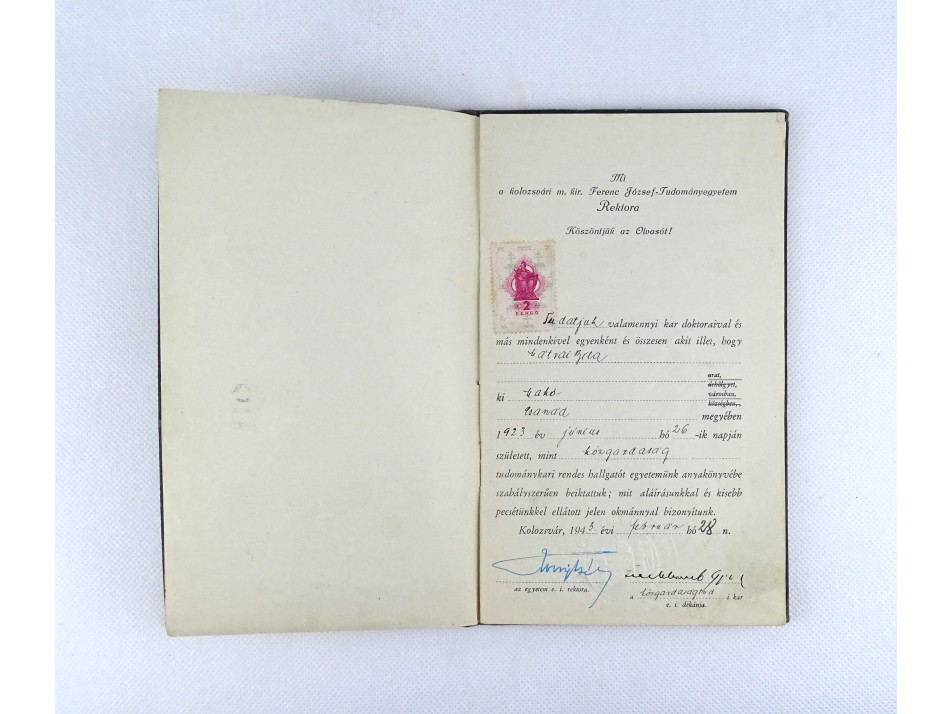 Mi
a kolozsvári m. kir. Ferenc József-Tudományegyetem
Rektora
Köszöntjük az Olvasót!
2
PENGŐ
Tudatjuk valamennyi kar doktoraival és
más mindenkivel egyenként és összesen akit illet, hogy
Béla
urat,
úrhölgyet,
ki Makó városban,
községben,
Csanád megyében
1923 év június hó 26-ik napján
született, mint közgazdaság
tudománykari rendes hallgatót egyetemünk anyakönyvébe
szabályszerűen beiktattuk; mit aláírásunkkal és kisebb
pecsétünkkel ellátott jelen okmánnyal bizonyítunk.
Kolozsvár, 1943 évi február hó 28 n.
az egyetem e. i. rektora.
a közgazdaságtud i kar
e. i. dékánja.